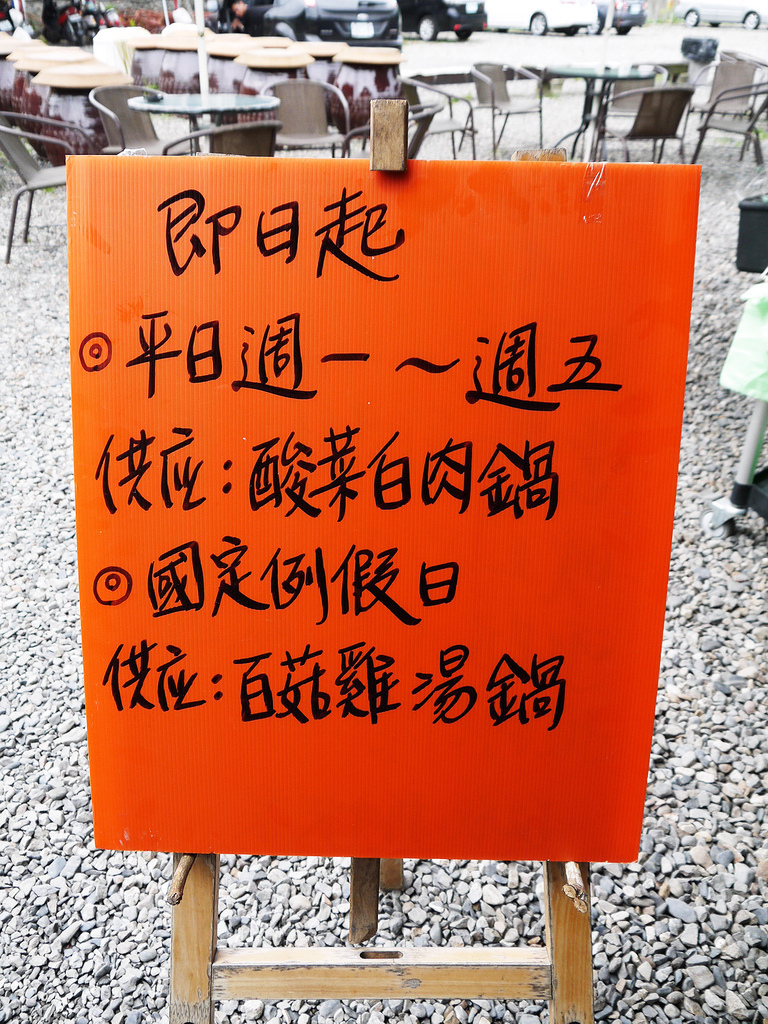 即日起
◎平日週一～週五
供应：酸菜白肉鍋
◎國定例假日
供应：百菇雞湯鍋